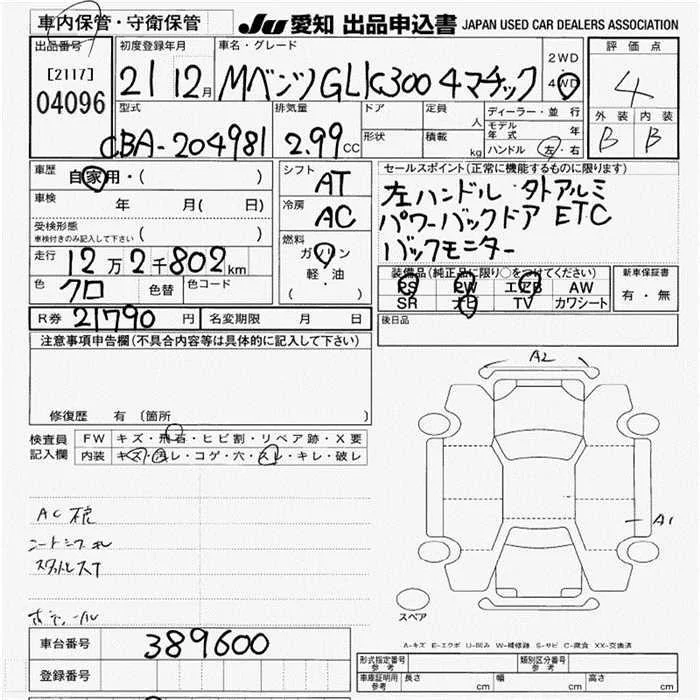 車内保管・守衛保管 JU 愛知 出品申込書 JAPAN USED CAR DEALERS ASSOCIATION
出品番号 初度登録年月 車名・グレード 2WD 評価点
[2117] 21 12月 Mベンツ GLK300 4マチック 4WD 4
04096 型式 排気量 ドア 定員 人 ディーラー・並行 外装 内装
モデル年式 年
CBA-204981 2.99CC 形状 積載 kg ハンドル 左・右 B B
車歴 自家用・( ) シフト AT セールスポイント(正常に機能するものに限ります)
車検 年 月( 日) 冷房 AC 左ハンドル
パワーバックドア ETC
受検形態 車検付きのみ記入して下さい ( ) 燃料 バックモニター
走行 12万2千802km ガソリン 装備品(純正品に限り○をつけてください) 新車保証書
色 クロ 色替 色コード 軽・油 PS PW エアB AW 有・無
( ) SR ナビ TV カワシート
R券 21790円 名変期限 月 日 後日品
注意事項申告欄(不具合内容等は具体的に記入して下さい)
A2
修復歴 有 〔箇所 〕
検査員記入欄 FW キズ・飛石・ヒビ割・リペア跡・X要
内装 キズ・汚レ・コゲ・穴・スレ・キレ・破レ
A1
AC
スペア
車台番号 389600 A-キズ E-エクボ U-凹み W-補修跡 S-サビ C-腐食 XX-交換済
登録番号 形式指定番号 参考 類別区分番号 参考
車庫証明用 参考 長さ cm 幅 cm 高さ cm